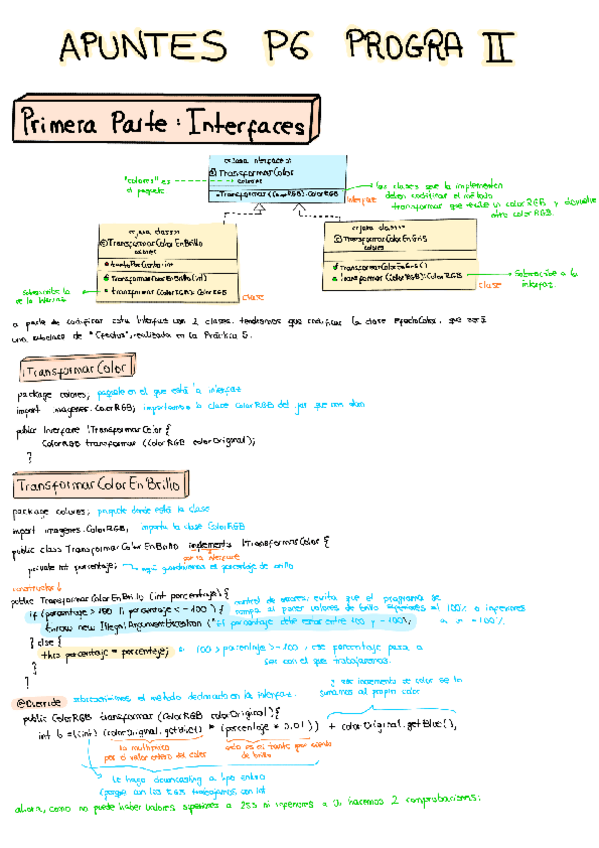 APUNTES P6 PROGRA II
Primera Parte: Interfaces
<<Java Interface>>
ITransformarColor
colores
"colores" es
el paquete
transformar (ColorRGB):ColorRGB
Interfaz
las clases que la implementen
deben codificar el método
transformar que recibe un color RGB y devuelve
otro color RGB.
<<Java class>>
TransformarColorEnBrillo
colores
TransformarColorEnBrillo(int)
transformar (ColorRGB): ColorRGB
clase
<<Java class>>
TransformarColorEnGris
colores
TransformarColorEnGris()
transformar (ColorRGB): ColorRGB
clase
Sobrescribe a la
interfaz.
a parte de codificar esta interfaz con 2 clases, tendremos que codificar la clase EfectoColor, que será
una subclase de "Efectos", realizada en la Práctica 5.
ITransformarColor
package colores; paquete en el que está la interfaz
import imagenes.ColorRGB; importamos la clase ColorRGB del jar que nos dan
public interface ITransformarColor {
ColorRGB transformar (ColorRGB colorOriginal);
}
TransformarColorEnBrillo
package colores; paquete donde está la clase
import imagenes.ColorRGB; importa la clase ColorRGB
public class TransformarColorEnBrillo implements ITransformarColor {
private int porcentaje; aquí guardaremos el porcentaje de brillo
constructor
public TransformarColorEnBrillo (int porcentaje) {
control de errores, evita que el programa se
if (porcentaje > 100 || porcentaje < -100) {
rompa al poner valores de brillo superiores al 100% o inferiores
throw new IllegalArgumentException ("El porcentaje debe estar entre 100 y -100");
a -100%.
} else {
this.porcentaje = porcentaje;
si 100 > porcentaje > -100, ese porcentaje pasa a
ser con el que trabajaremos.
}
}
@Override sobrescribimos el método declarado en la interfaz.
y ese incremento de color se lo
sumamos al propio color
public ColorRGB transformar (ColorRGB colorOriginal) {
int b = ((int) (colorOriginal.getBlue() * (porcentaje * 0.01)) + colorOriginal.getBlue();
lo multiplico
por el valor entero del color
esto es el tanto por ciento
de brillo
le hago downcasting a tipo entero
(porque con los RGB trabajamos con int
ahora, como no puede haber valores superiores a 255 ni inferiores a 0, hacemos 2 comprobaciones: